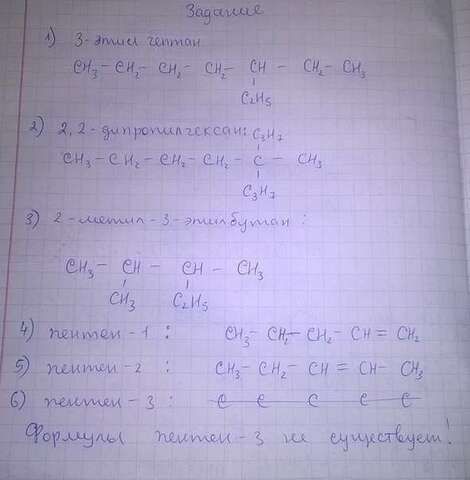 Задание
1) 3-этил гептан
CH3 - CH2 - CH2 - CH2 - CH - CH2 - CH3
C2H5
2) 2,2-дипропилгексан: C3H7
CH3 - CH2 - CH2 - CH2 - C - CH3
C3H7
3) 2-метил-3-этилбутан:
CH3 - CH - CH - CH3
CH3 C2H5
4) пентен-1: CH3 - CH2 - CH2 - CH = CH2
5) пентен-2: CH3 - CH2 - CH = CH - CH3
6) пентен-3: C C C C C
Формулы пентен-3 не существует!